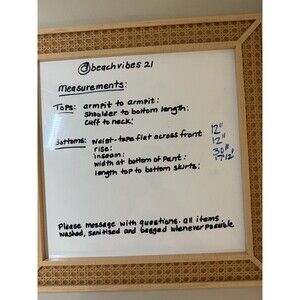 @beachvibes 21
Measurements:
Tops: armpit to armpit:
shoulder to bottom length:
cuff to neck:
Bottoms: waist-tape flat across front 12"
rise: 12"
inseam: 30"
width at bottom of pant:
length top to bottom skirts:
Please message with questions. All items
washed, sanitized and bagged whenever possible